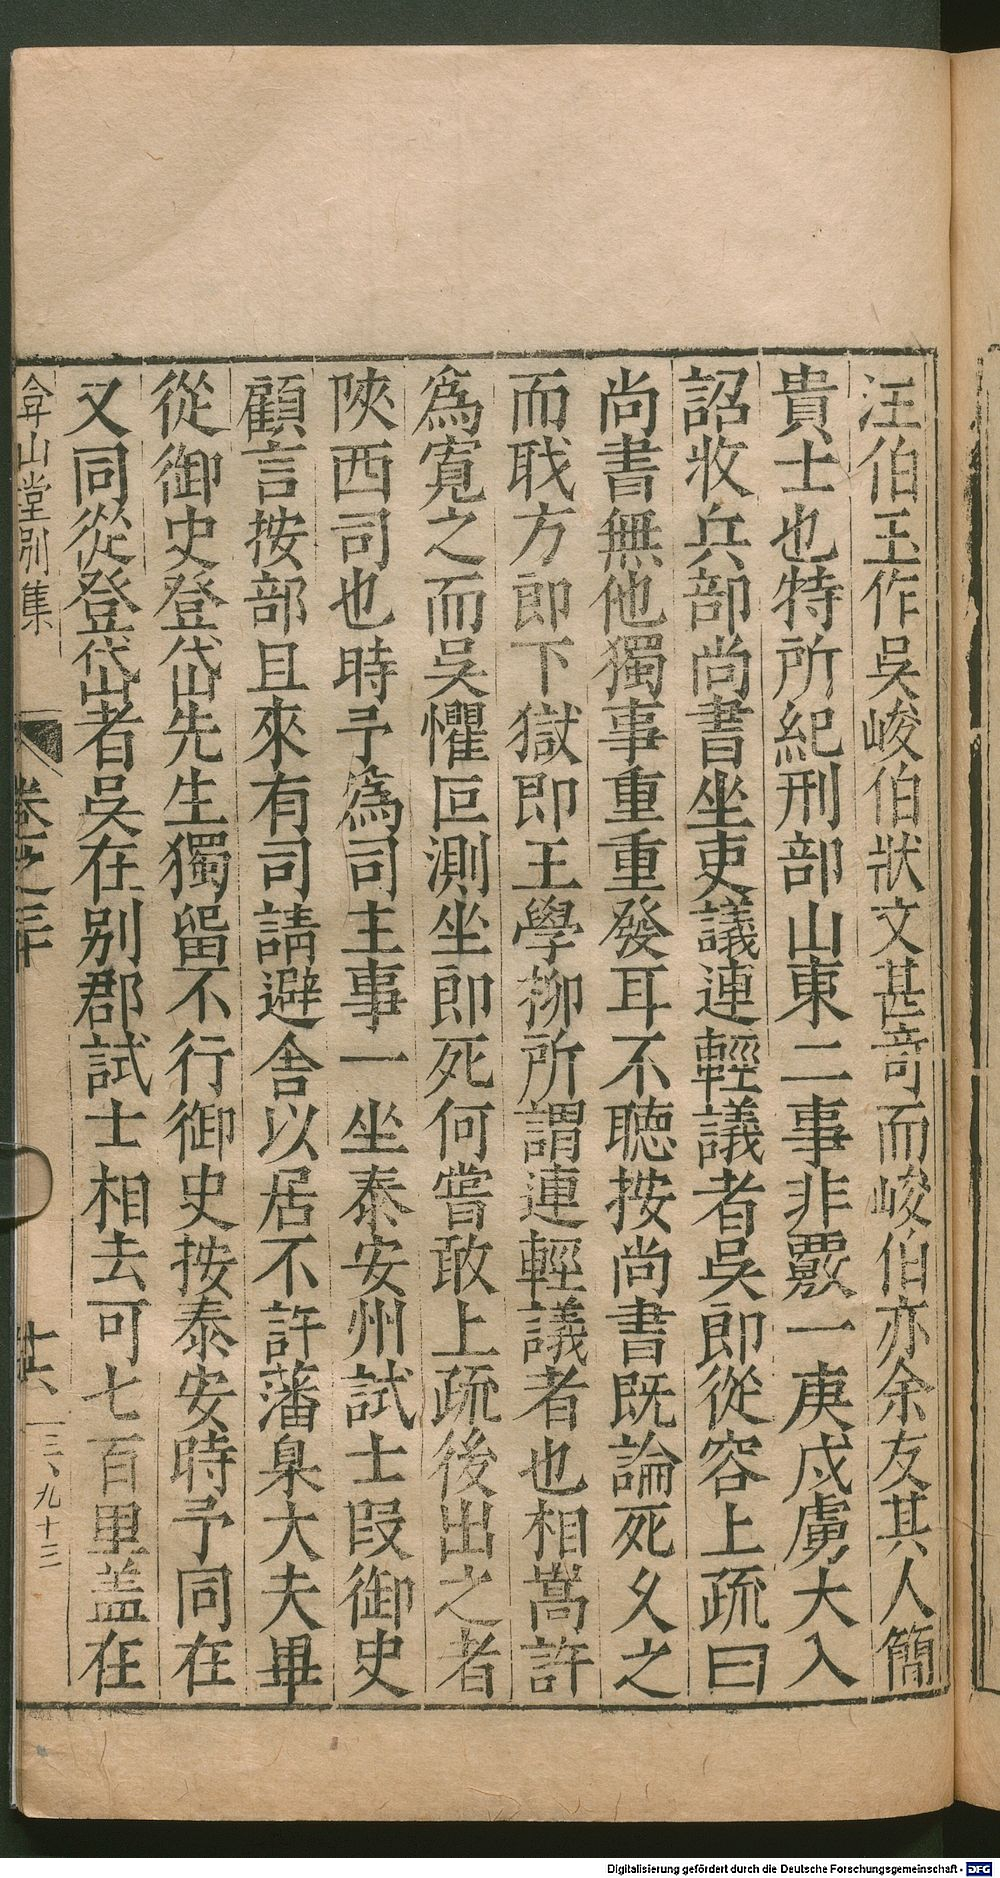 汪伯玉作吳峻伯狀文甚竒而峻伯亦余友其人簡
貴士也特所紀刑部山東二事非覈一庚戌虜大入
詔收兵部尚書坐吏議連輕議者吳即從容上疏曰
尚書無他獨事重重發耳不聽按尚書既論死乆之
而戝方即下獄即王學柳所謂連輕議者也相嵩許
爲寛之而吳懼叵測坐即死何嘗敢上疏後出之者
陝西司也時予爲司主事一坐泰安州試士叚御史
顧言按部且來有司請避舍以居不許藩臬大夫畢
從御史登岱山先生獨畱不行御史按泰安時予同在
又同從登岱山者吳在别郡試士相去可七百里盖在
弇山堂别集
卷之二十
十六
三、九十三
Digitalisierung gefördert durch die Deutsche Forschungsgemeinschaft - DFG